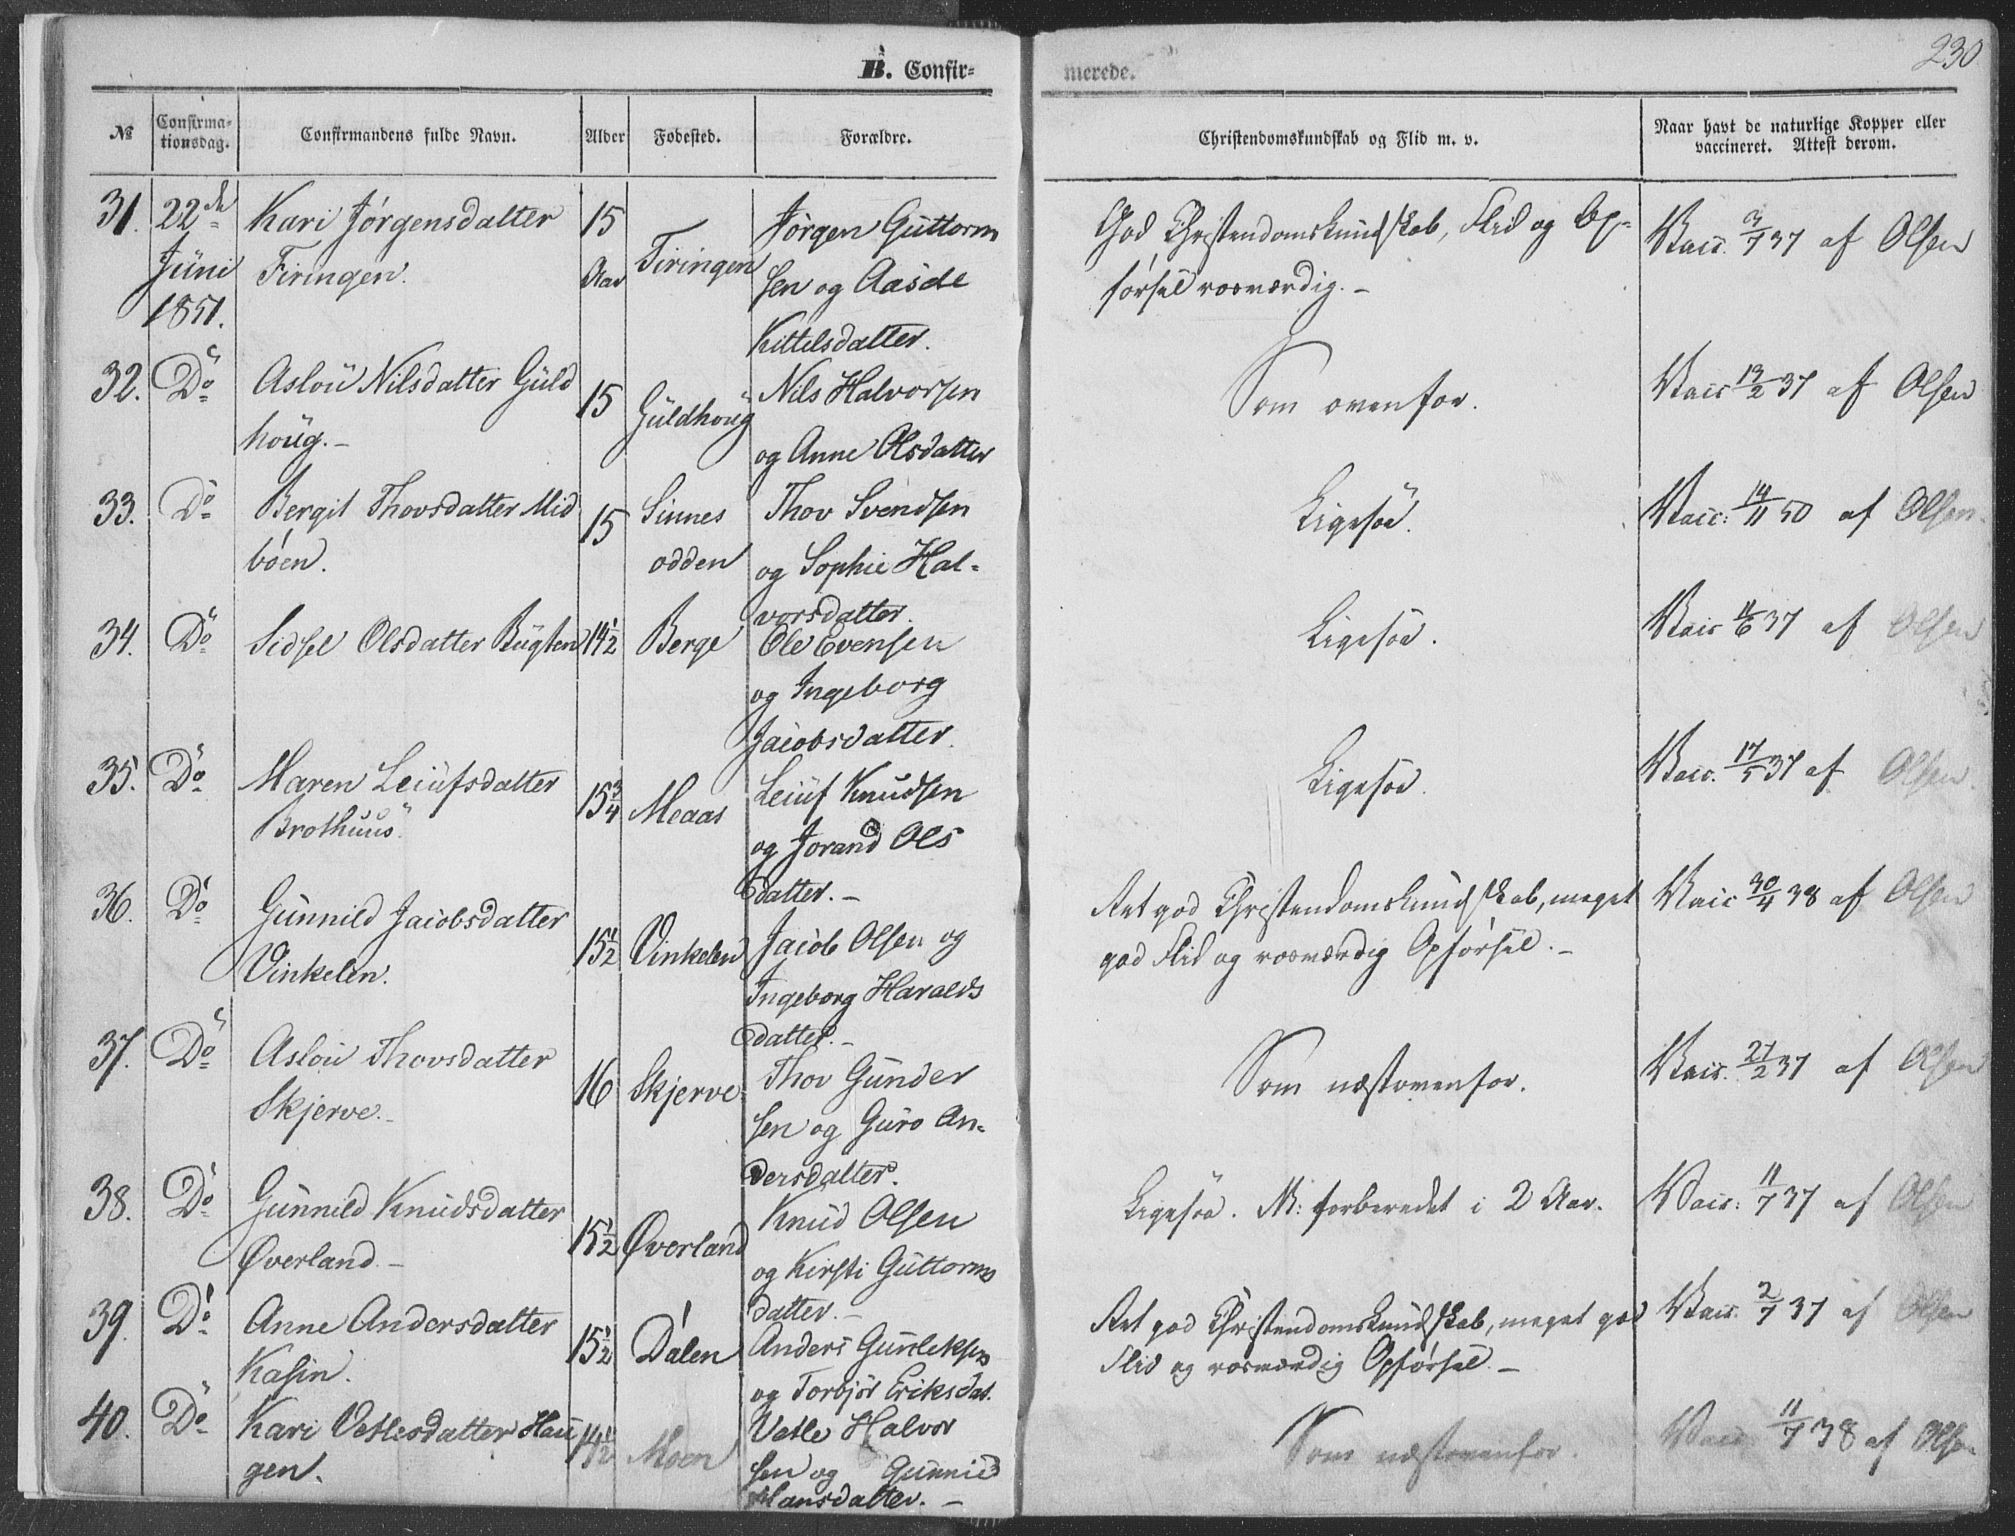 230
B. Confir-
merede.
№
Confirma-
tionsdag.
Confirmandens fulde Navn.
Alder
Fødested.
Forældre.
Christendomskundskab og Flid m. v.
Naar havt de naturlige Kopper eller
vaccineret. Attest derom.
31. 22de Kari Jørgensdatter 15 Jørgen Guttorm
Juni Firingen. Aar Firingen sen og Aasde
1851. Kittelsdatter.
God Christendomskundskab, Flid og Op-
førsel roesværdig. –
Vacc. 3/7 37 af Olsen
32. Do Aslou Nilsdatter Guld 15 Guldhoug Nils Halvorsen
houg. – og Anne Olsdatter
Som ovenfor.
Vacc 13/2 37 af Olsen
33. Do Bergit Thovsdatter Mid 15 Sinnes Thov Svendsen
bøen. odden og Sophie Hal-
vorsdatter.
Ligesaa.
Vacc: 14/11 50 af Olsen.
34. Do Sidsel Olsdatter Bugten 14½ Berge Ole Evensen
og Ingeborg
Jacobsdatter.
Ligesaa.
Vacc 11/6 37 af Olsen
35. Do Maren Leiufsdatter 15¾ Meaas Leiuf Knudsen
Brothuus. og Jorand Ols
datter. –
Ligesaa.
Vacc. 17/5 37 af Olsen.
36. Do Gunnild Jacobsdatter 15½ Vinkelen Jacob Olsen og
Vinkelen. Ingeborg Haralds
datter. –
Ret god Christendomskundskab, meget
god Flid og roesværdig Opførsel. –
Vacc 30/4 38 af Olsen
37. Do Aslou Thovsdatter 16 Skjerve. Thov Gunder
Skjerve. – sen og Guro An-
dersdatter.
Som næstovenfor.
Vacc. 21/2 37 af Olsen
38. Do Gunnild Knudsdatter 15½ Øverland Knud Olsen
Øverland. – og Kirsti Guttorms
datter. –
Ligesaa. N: forberedet i 2 Aar.
Vacc: 11/7 37 af Olsen
39. Do Anne Andersdatter 15½ Dalen Anders Gunleksen
Kasin. og Torbjør Eriksdat.
Ret god Christendomskundskab, meget god
Flid og roesværdig Opførsel. –
Vacc. 2/7 37 af Olsen
40. Do Kari Vetlesdatter Hau 14½ Moen Vetle Halvor
gen. sen og Gunnild
Hansdatter. –
Som næstovenfor.
Vacc 11/7 38 af Olsen